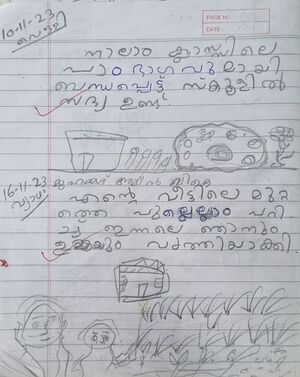 PAGE NO.
DATE
10-11-23
വെള്ളി
നാലാം ക്ലാസ്സിലെ
പാഠഭാഗവുമായി
ബന്ധപ്പെട്ട് സ്കൂളിൽ
സദ്യ ഉണ്ട്.
16-11-23
വ്യാഴം
എന്റെ വീട്ടിലെ മുറ്റ
ത്തെ പുല്ലെല്ലാം പറി
ച്ച് ഇന്നലെ ഞാനും
ഉമ്മയും വൃത്തിയാക്കി.